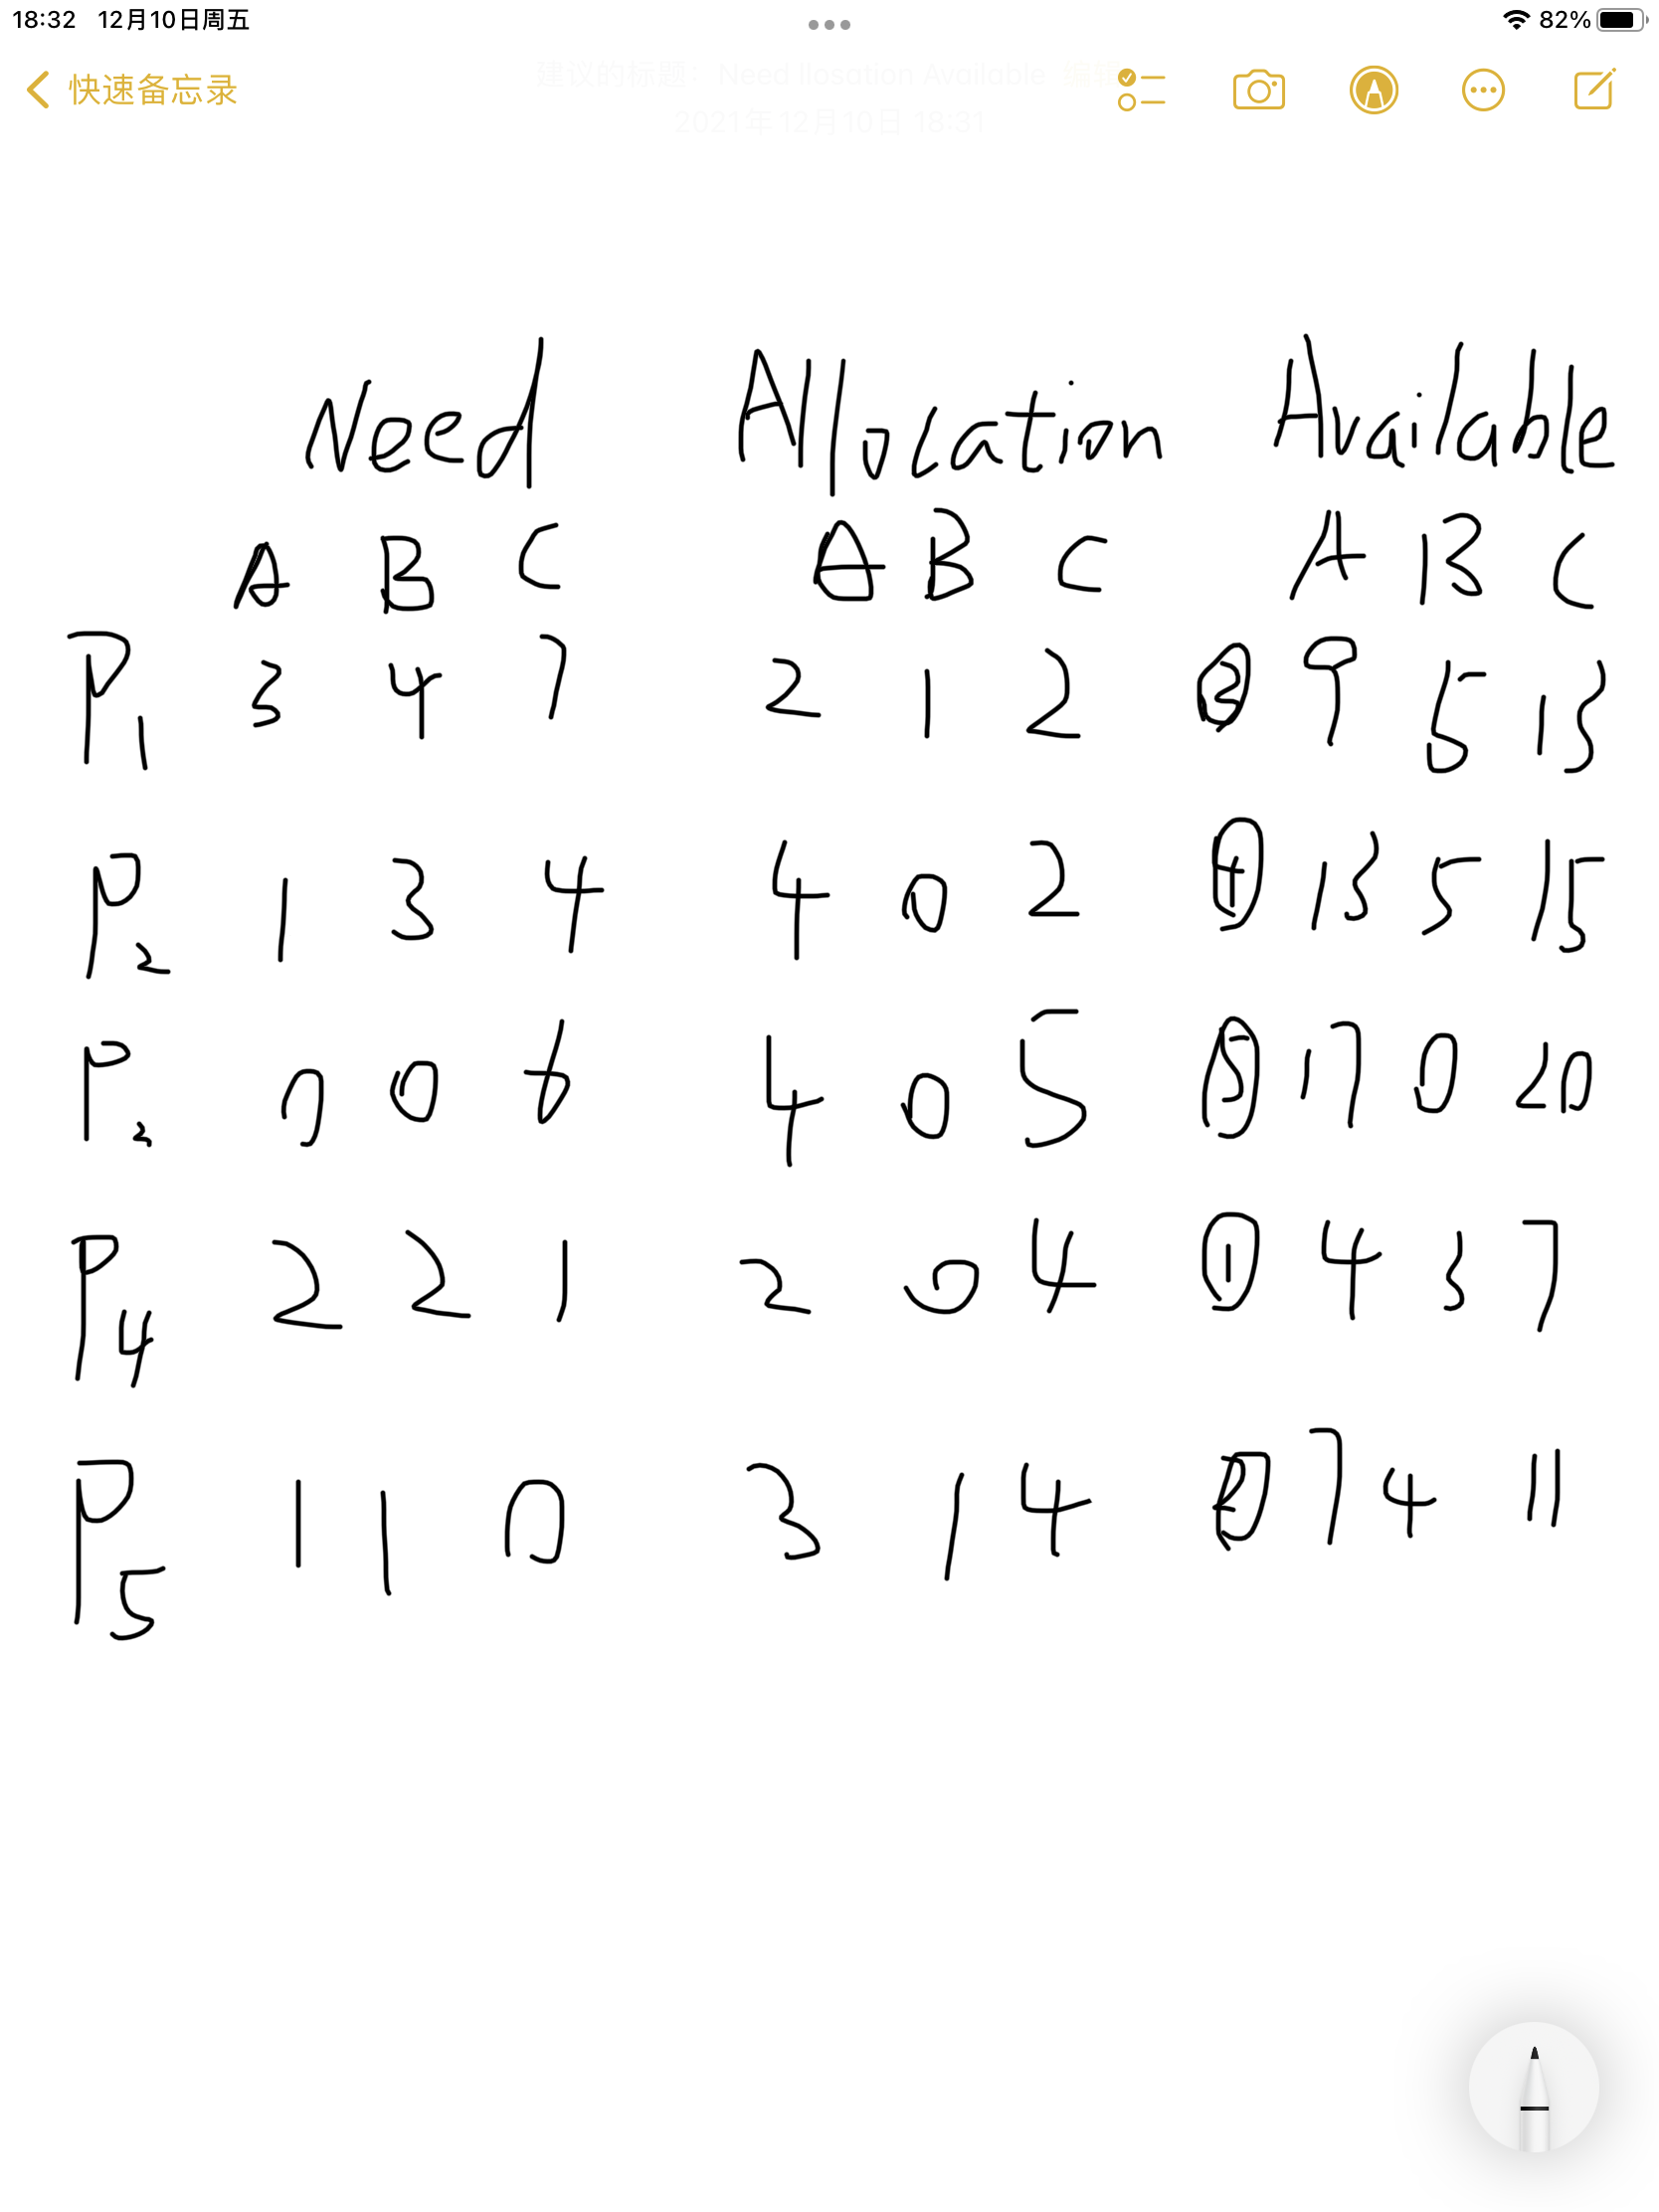 18:32 12月10日周五 82%
快速备忘录
建议的标题: Need llosation Available 编辑
2021年12月10日 18:31
Need Allocation Available
A B C A B C A B C
P1 3 4 7 2 1 2 ③ 9 5 13
P2 1 3 4 4 0 2 ④ 13 5 15
P3 0 0 6 4 0 5 ⑤ 17 0 20
P4 2 2 1 2 0 4 ① 4 3 7
P5 1 1 0 3 1 4 ② 7 4 11